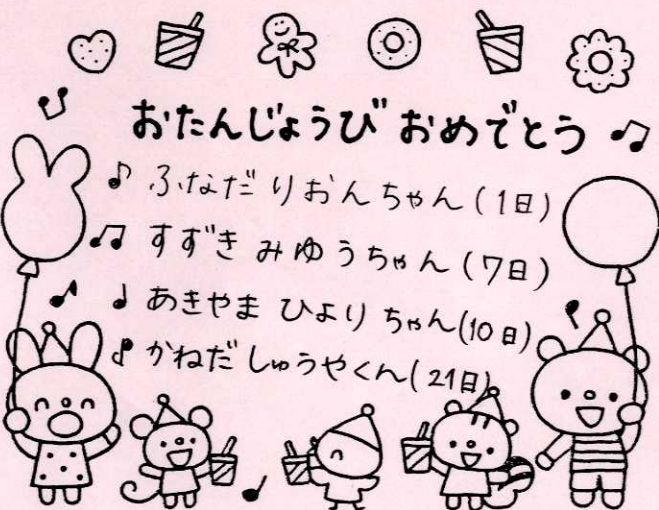 おたんじょうび おめでとう
ふなだ りおんちゃん(1日)
すずき みゆうちゃん(7日)
あきやま ひより ちゃん(10日)
かねだ しゅうやくん(21日)